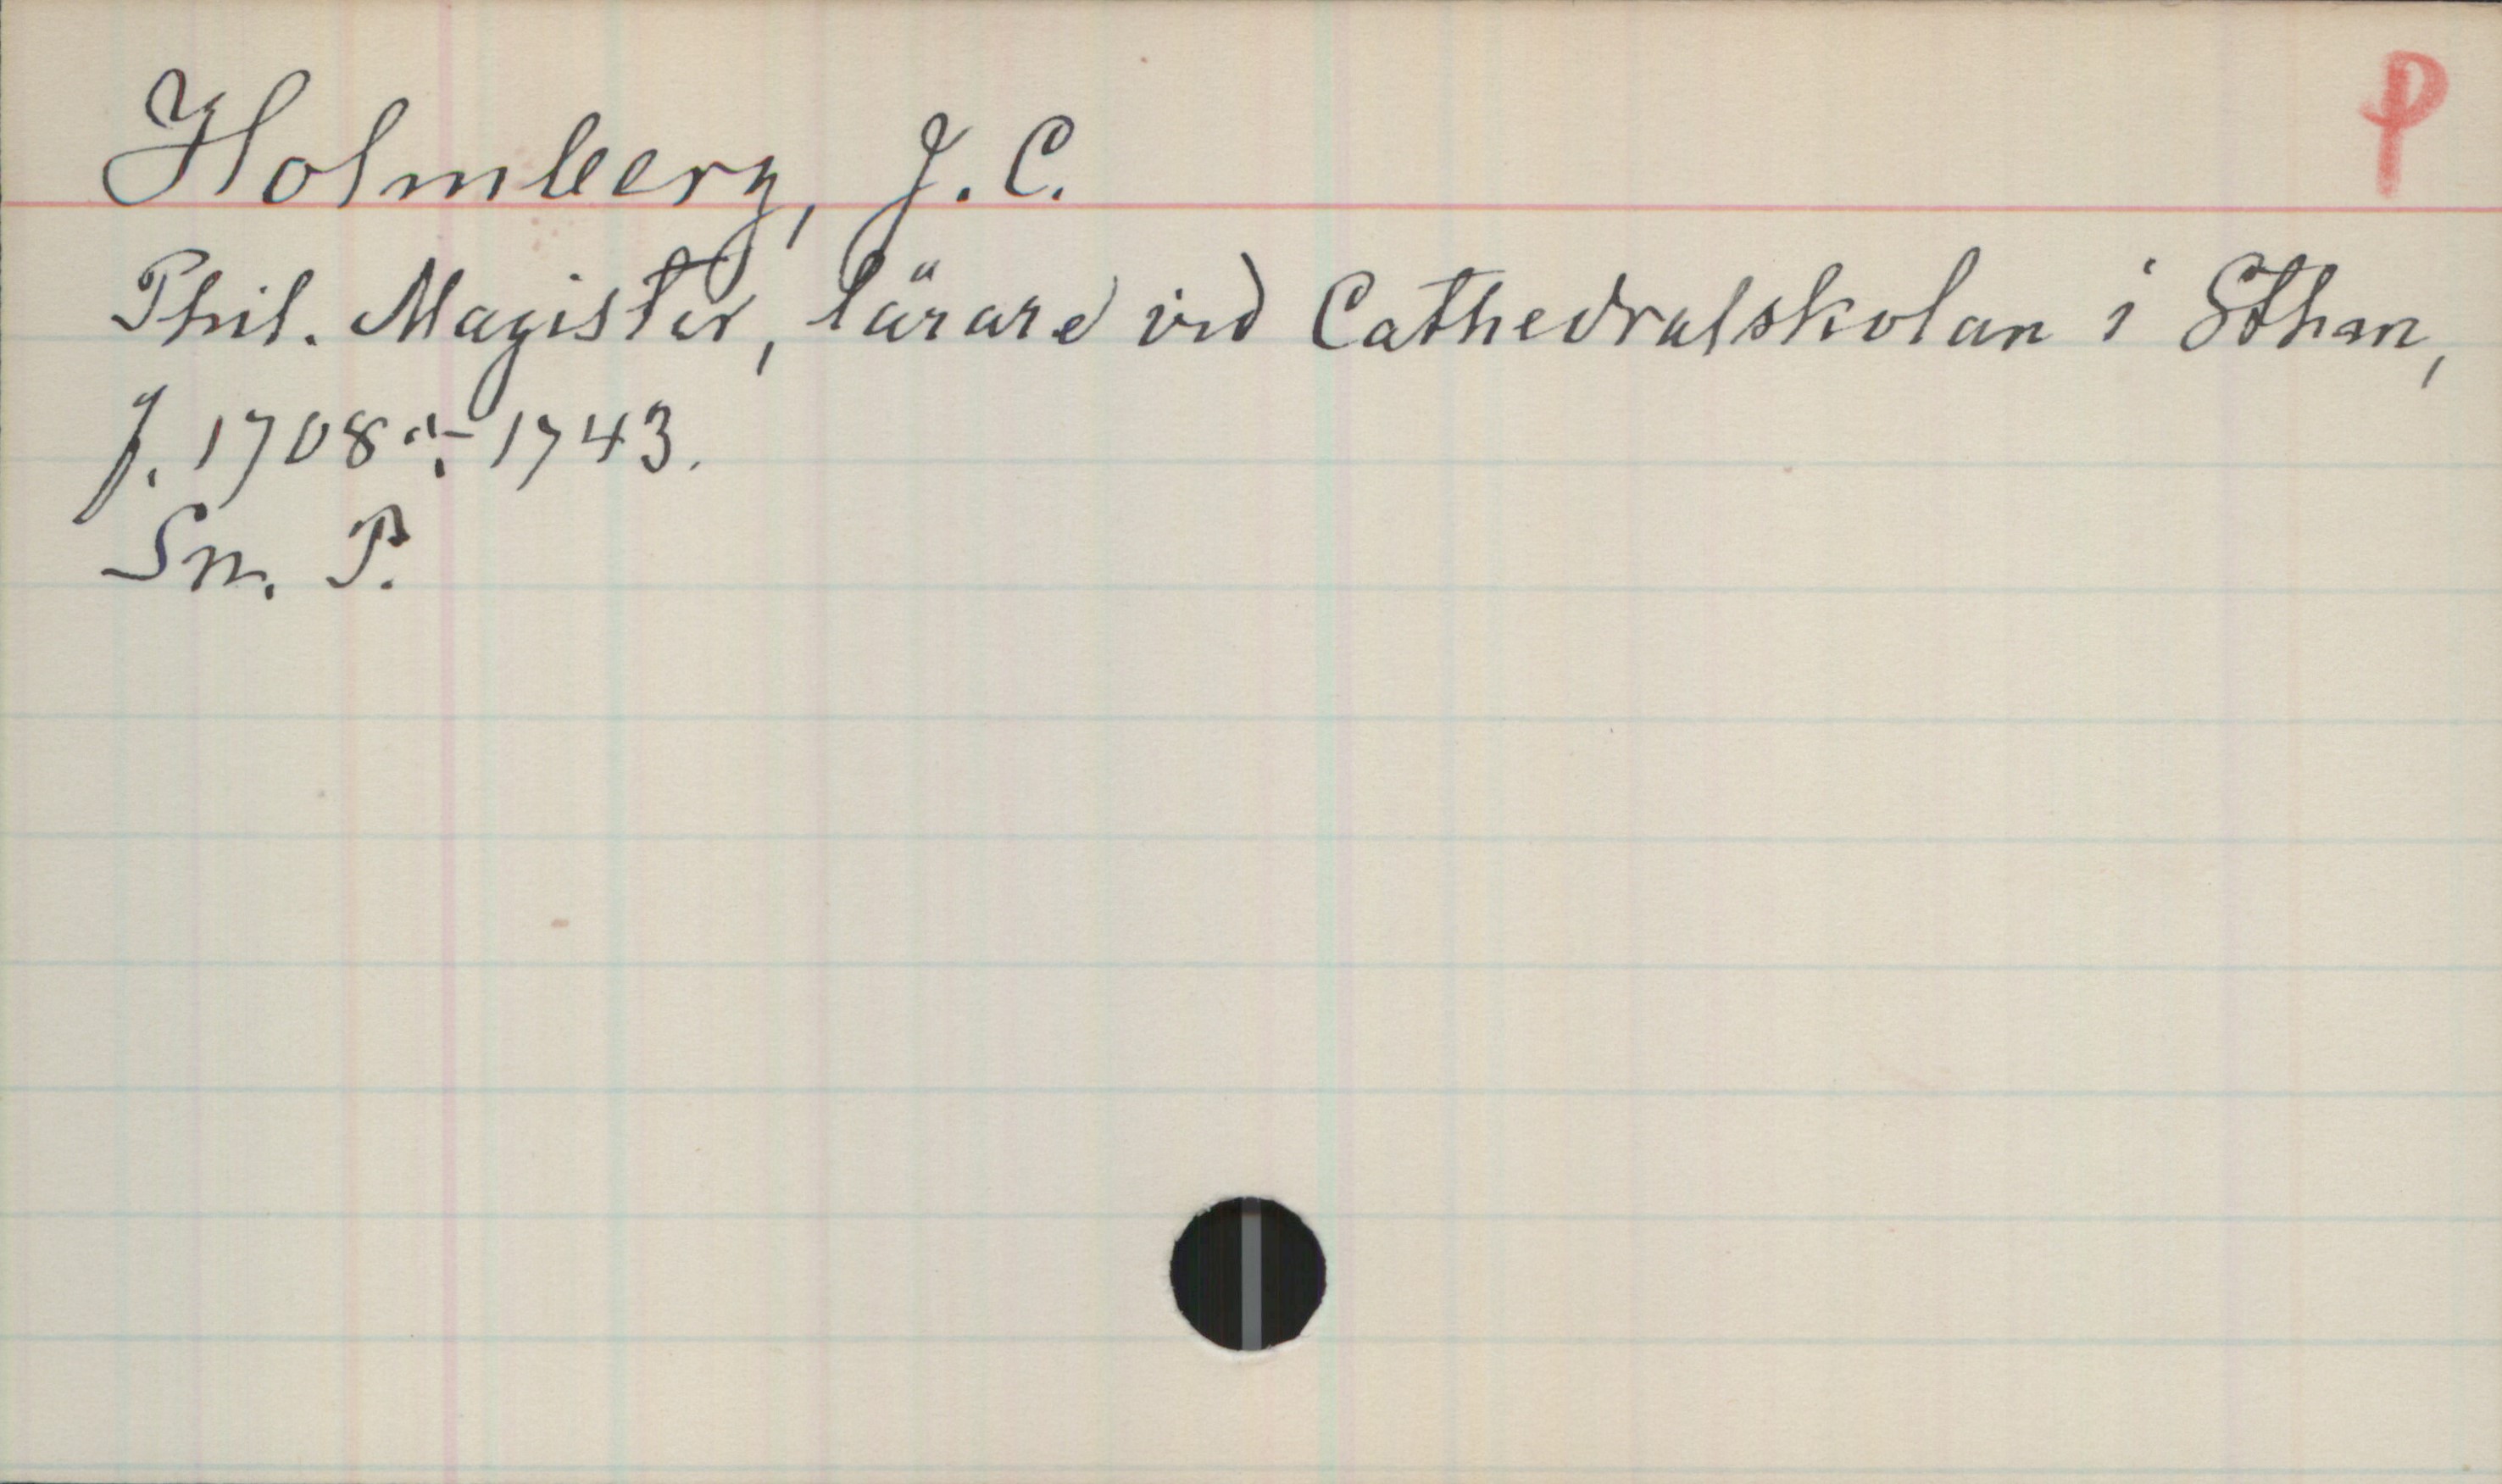 P
Holmberg, J. C.
Phil. Magister, lärare vid Cathedralskolan i Sthm,
f. 1708 ÷ 1743.
Sn. P.